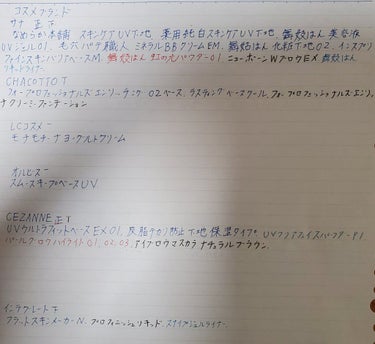 コスメブランド
サナ 正 下
なめらか本舗 スキンケアUV下地 薬用純白スキンケアUV下地 舞妓はん 美容液
UVジェル01. 毛穴パテ職人 ミネラルBBクリームEM. 舞妓はん 化粧下地02. インスプリ
ファインスキンバリアベースM. 舞妓はん 虹の元パウダー01 ニューボーンWブロウEX 舞妓はん
CHACOTT T
フォープロフェッショナルズ. エンリッチング 02ベース. ラスティング ベースクール. フォープロフェッショナルズ. エンリッ
チクリーミィファンデーション
LCコスメ 一
モチモチーナ ヨーグルトクリーム
オルビス 一
スムースキープベースUV
CEZANNE 正 T
UVウルトラフィットベースEX01. 皮脂テカリ防止下地 保湿タイプ. UVクリアフェイスパウダーP1
パールグロウハイライト01. 02. 03. アイブロウマスカラ ナチュラルブラウン.
インテグレート 下
フラットスキンメーカーN. プロフィニッシュリキッド. スナイプジェルライナー.